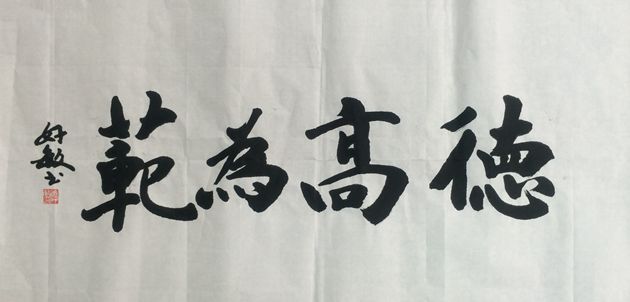 德高為範
好敏书